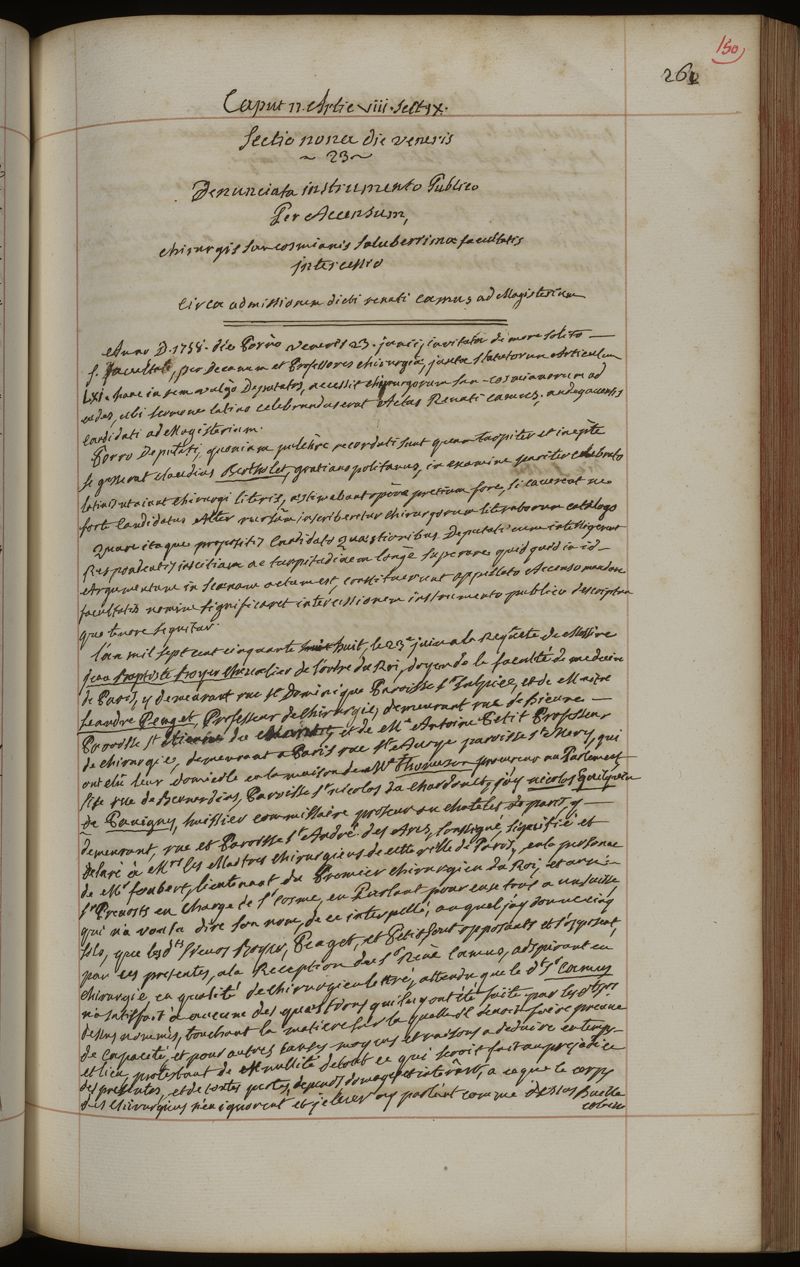 150
262
Caput 11. Artic VIII. Sect IX.
Sectio nona die veneris
~ 23 ~
Denunciata instrumento Publico
Per Accensum,
chirurgis Sancosmianis Saluberrimæ facultatis
intercessio
Circa admissionem dicti renati camus ad Magisterium
Anno D. 1758. die Porrò veneris 23. junii, invitata de more solito
S. facultate, per Decanum et Professores chirurgiæ, juxta statutorum Articulum
LXI. hanc in rem vulgò Deputatos, accessit chirurgorum San-cosmianorum ad
ædes, ubi sermone latino celebrandus erat Actus Renati camus, andegavensis
Candidati ad Magisterium.
Porro Deputati, quoniam pulchre recordati sunt quam turpiter et ineptè
se gesserat claudius Bertholet, gratianopolitanus, in examine pariter celebrato
latinè ut aiunt chirurgi literis, æstimabant operæ pretium fore, si caverent ne
forte Candidatus Alter rursùm inscriberetur chirurgorum literatorum catalogo
Quare itaque propositis Candidato Quæstionibus Deputati cum intelligerent
Respondentis inscitiam ac turpitudinem longè superare quidquid in id
Argumentum in scenam actum est, constituerunt appellato Accenso mandare
facultatis nomine significaret intercessionem instrumento publico descriptam
quo tenore sequitur.
L'an mil sept cent cinquante huit, le 23e juin a la Requête de Messire
jean Baptiste Boyer chevalier de l'ordre du Roi, doyen de la faculté de medecine
de Paris, y demeurant rue St Dominique Paroisse St Sulpice, et de Maitre
Leandre Peaget, Professeur de Chirurgie, demeurant rue de Bievre
Paroisse St Etienne du Mont, et de Me Antoine Petit Professeur
de chirurgie, demeurant a Paris rue Ste Avoye paroisse St Mery, qui
ont élu leur domicile en la maison de Me Thomeson procureur au Parlement
Size rue des Bernardins, Paroisse St nicolas du chardonet, j'ay nicolas
de Pavigny, huissier commissaire priseur au chatelet de paris, y
demeurant, rue et Paroisse St André des Arcs, soussigné, signifié et
declaré à Mrs les Maitres chirurgiens de cette ville de Paris, en la personne
de Mr foubert, lieutenant du Premier chirurgien du Roi, et aux
srs Prevosts en charge de St Cosme, en Parlant pour eux tous a un suisse
qui n'a voulu dire son nom, de ce interpellé, auquel j'ay donné cinq
sols, que lesdts sieurs Boyer, Peaget, et Petit sont opposants et s'opposent,
par ces presentes, a la Reception du Sr René Camus, aspirant en
chirurgie, en qualité de chirurgien lettré, attendu que le dt Sr Camus
n'a satisfait a aucune des questions qui luy ont été faite par les dts srs
dessus nommés, touchant la matiere sur laquelle il devoit faire preuve
de capacité, et pour autres causes moyens et raisons a deduire en temps
et lieu, protestant de nullité de tout ce qui seroit fait au prejudice
des presentes, et de toutes pertes, depends domages et interêsts, a ce que le corps
des chirurgiens n'en ignorent et je leur ay parlant comme dessus Baillé